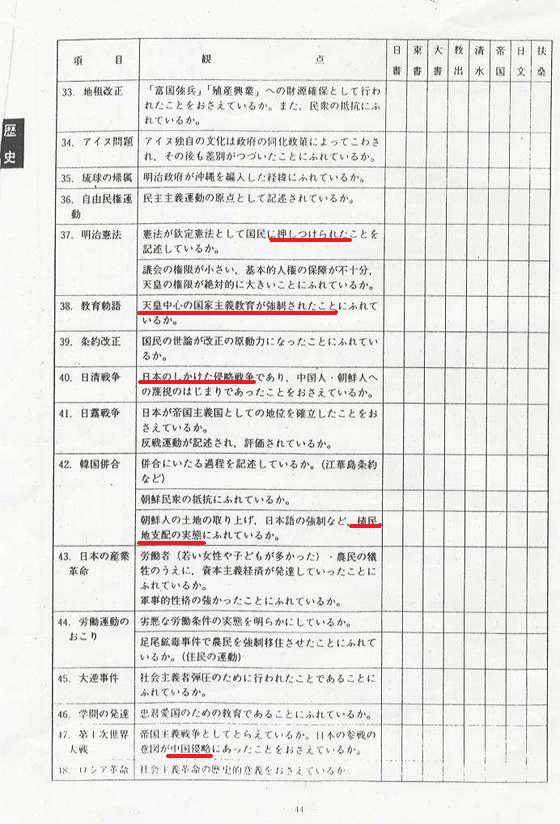 項　目　観　点　日書　東書　大書　教出　清水　帝国　日文　扶桑
歴史
33. 地租改正　「富国強兵」「殖産興業」への財源確保として行わ
れたことをおさえているか。また、民衆の抵抗にふ
れているか。
34. アイヌ問題　アイヌ独自の文化は政府の同化政策によってこわさ
れ、その後も差別がつづいたことにふれているか。
35. 琉球の帰属　明治政府が沖縄を編入した経緯にふれているか。
36. 自由民権運　民主主義運動の原点として記述されているか。
動
37. 明治憲法　憲法が欽定憲法として国民に押しつけられたことを
記述しているか。
議会の権限が小さい、基本的人権の保障が不十分、
天皇の権限が絶対的に大きいことにふれているか。
38. 教育勅語　天皇中心の国家主義教育が強制されたことにふれて
いるか。
39. 条約改正　国民の世論が改正の原動力になったことにふれてい
るか。
40. 日清戦争　日本のしかけた侵略戦争であり、中国人・朝鮮人へ
の蔑視のはじまりであったことをおさえているか。
41. 日露戦争　日本が帝国主義国としての地位を確立したことをお
さえているか。
反戦運動が記述され、評価されているか。
42. 韓国併合　併合にいたる過程を記述しているか。（江華島条約
など）
朝鮮民衆の抵抗にふれているか。
朝鮮人の土地の取り上げ、日本語の強制など、植民
地支配の実態にふれているか。
43. 日本の産業　労働者（若い女性や子どもが多かった）・農民の犠
革命　牲のうえに、資本主義経済が発達していったことに
ふれているか。
軍事的性格の強かったことにふれているか。
44. 労働運動の　劣悪な労働条件の実態を明らかにしているか。
おこり　足尾鉱毒事件で農民を強制移住させたことにふれて
いるか。（住民の運動）
45. 大逆事件　社会主義者弾圧のために行われたことであることに
ふれているか。
46. 学問の発達　忠君愛国のための教育であるにふれているか。
47. 第1次世界　帝国主義戦争としてとらえているか。日本の参戦の
大戦　意図が中国侵略にあったことをおさえているか。
48. ロシア革命　社会主義革命の歴史的意義をおさえているか
44